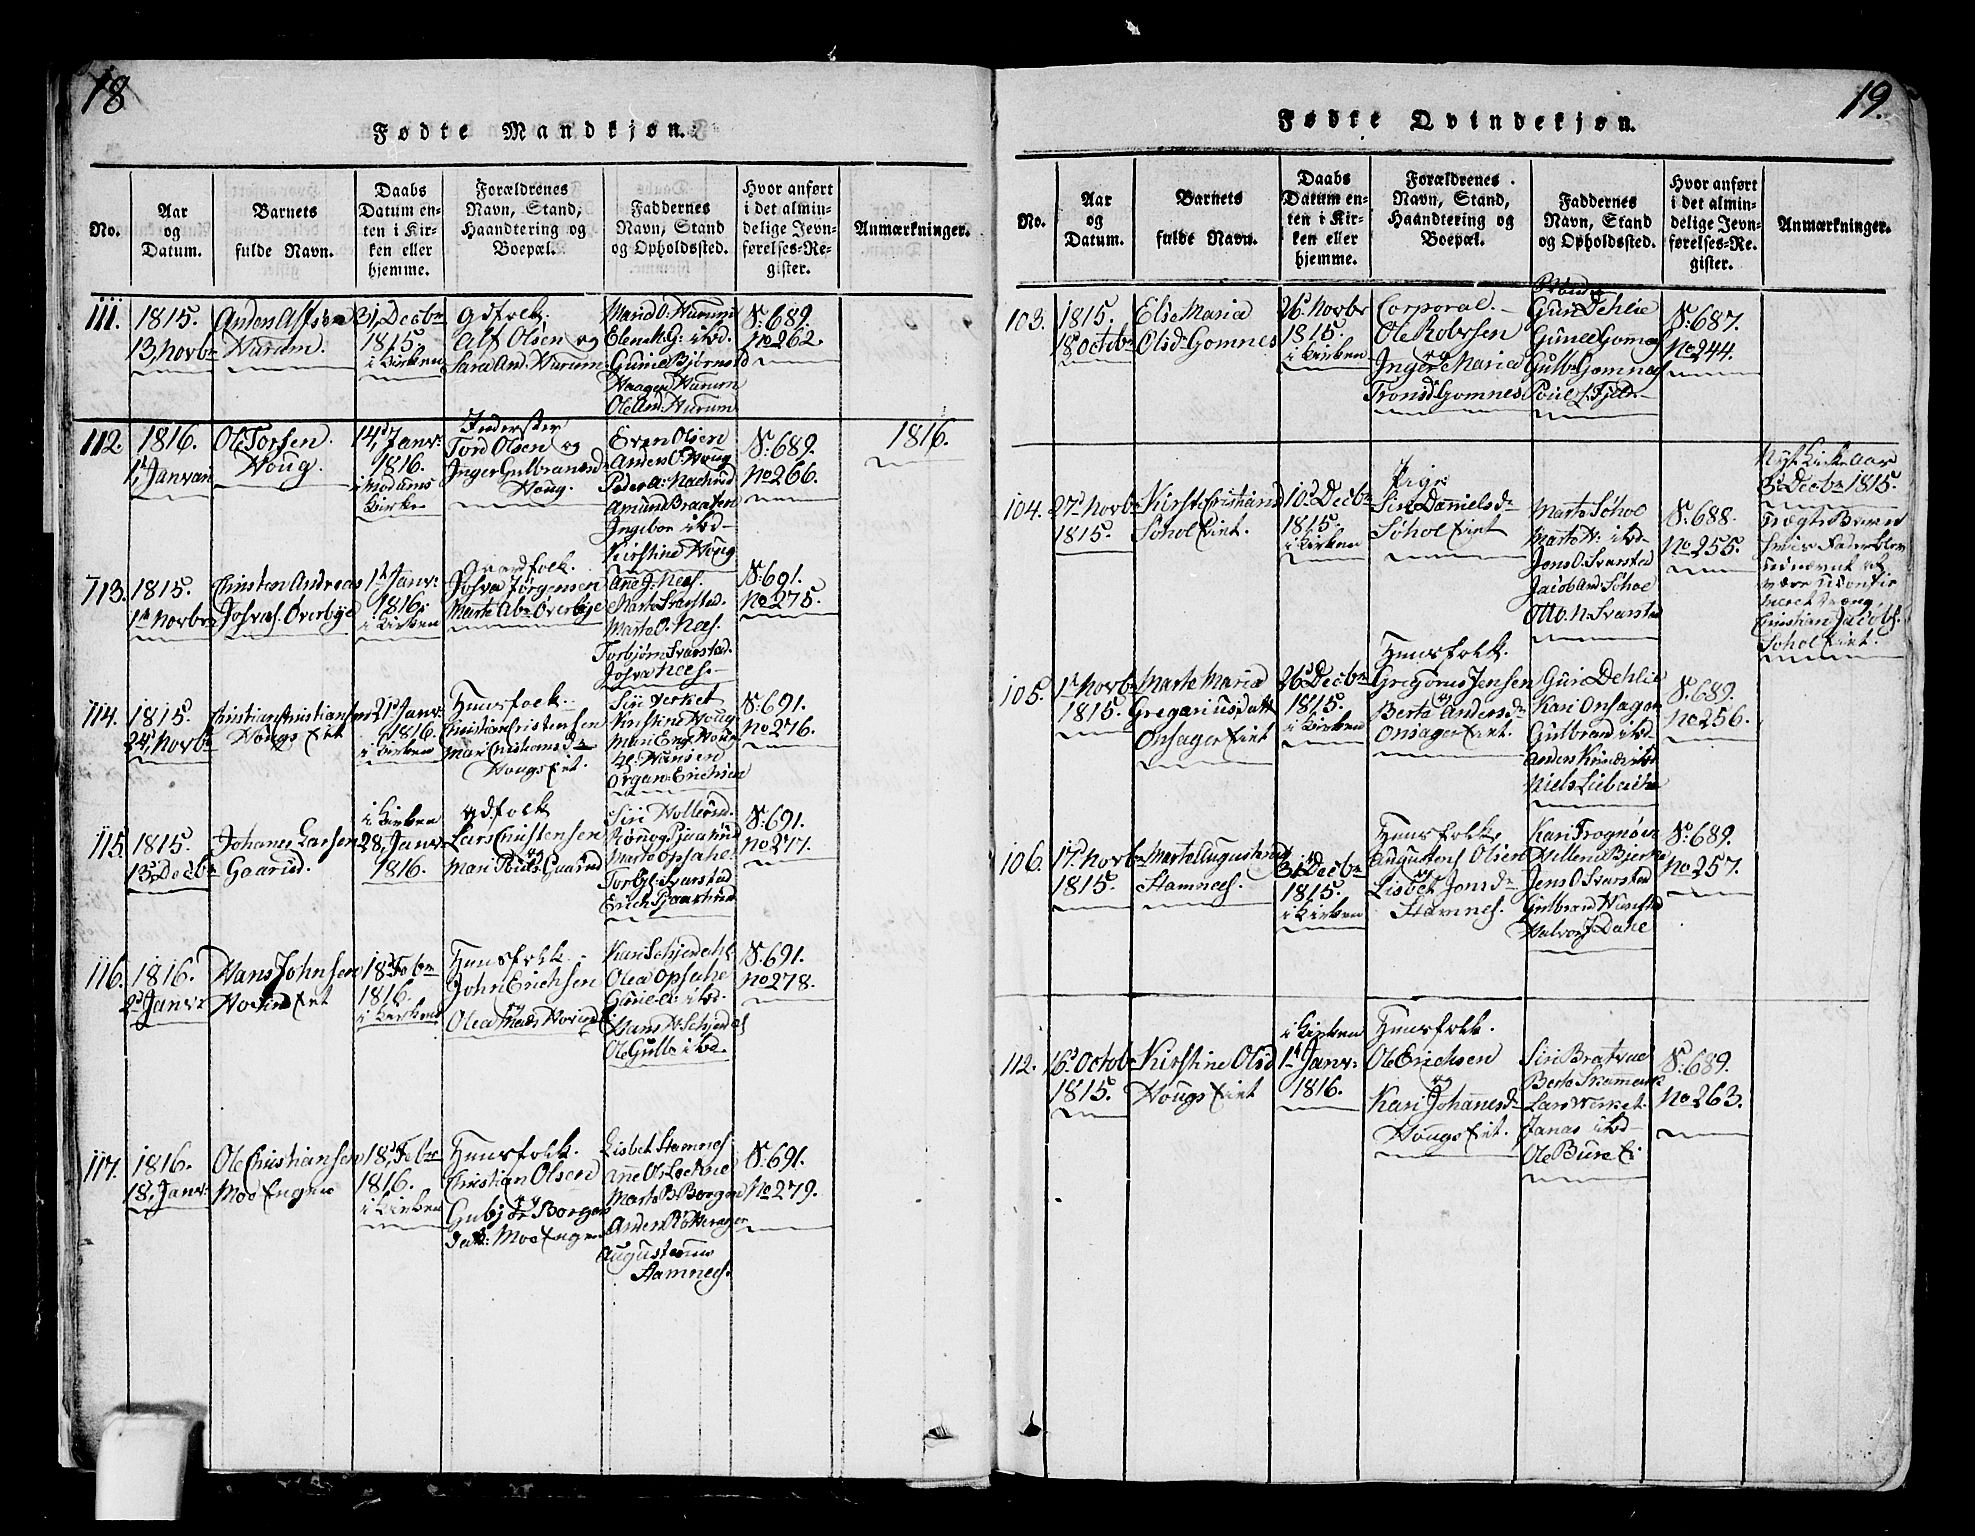 18
Fødte Mandkjøn.
No.
Aar
og
Datum.
Barnets
fulde Navn.
Daabs
Datum en-
ten i Kir-
ken eller
hjemme.
Forældrenes
Navn, Stand,
Haandtering og
Boepæl.
Faddernes
Navn, Stand
og Opholdssted.
Hvor anført
i det almin-
delige Jevn-
førelses-Re-
gister.
Anmærkninger.
111.
1815.
13, Novbr
Anders
Hurum.
31, Decbr
1815.
i Kirken
Gdfolk.
Alf Olsen og
Sara And. Hurum.
Hurum
Elen
Guni Bjørnerd
Haagen Hurum
Ole And: Hurum
S: 689.
No 262.
112.
1816.
1, Januari
Ole Torsen
Houg.
14, Janv:
1816.
i Modums
Kirke
Inderster
Tord Olsen og
Inger Gulbrands
Houg.
Even Olsen
Anders O: Houg
Amund Braaten
Ingebor ibd
Kirstine Houg
S: 689.
No 266.
1816.
113.
1815.
1 Novbr
Christian Andreas
Josvas. Overbye
1 Janv:
1816.
i Kirken
Gaardfolk.
Josva Jørgensen
Marte Overbye
Ane J. Nees.
Marte Svarstad.
Marte O. Nees.
Torbjørn Svarstad.
Josva Nees.
S: 691.
No 275.
114.
1815.
24, Novbr
Christian Christiansen
Hougs Eiet
21 Janv:
1816.
i Kirken
Huusfolk.
Christian Christensen
Mari Christians D
Hougs Eiet.
Siri Verket
Kirstine Houg
Mari Eng. Houg
Hansen
Organ: Erichsen
S: 691.
No 276.
115.
1815.
13, Decbr
Johanes Larsen
Gaarud.
i Kirken
28, Janv:
1816.
Gdfolk
Lars Christensen
Mari Gaarud
Siri Hollerud.
Marte Opsahl.
Torbj: Svarstad
Erich
S: 691.
No 277.
116.
1816.
2 Janv:
Hans Johnsen
Hovind Eiet
18 Febr
1816.
i Kirken
Huusfolk.
John Erichsen
og
Olea Hovind
Kari
Olea Opsahl
Ole Gulb: ibd.
S: 691.
No 278.
117.
1816.
18, Janv:
Ole Christiansen
Moe Engen
18, Febr
1816.
i Kirken
Huusfolk.
Christian Olsen
og
Borger
Datt: Moe Engen
Lisbet Stamnes
Marte B Borgen
Anders
Augustinus
Stamnees.
S: 691.
No 279.
19.
Fødte Qvindekjøn.
No.
Aar
og
Datum.
Barnets
fulde Navn.
Daabs
Datum en-
ten i Kir-
ken eller
hjemme.
Forældrenes
Navn, Stand,
Haandtering og
Boepæl.
Faddernes
Navn, Stand
og Opholdssted.
Hvor anført
i det almin-
delige Jevn-
førelses-Re-
gister.
Anmærkninger.
103.
1815.
18 Octbr
Else Maria
Olsd: Gomnes
26 Novbr
1815.
i Kirken
Corporal.
Ole Robersen
og
Inger Maria
Tronsd: Gomnes
Guri Dehlie
Gunil Gomnes
Gulbr. Gomnes
S: 687.
No 244.
104.
27 Novbr
1815.
Søhol Eiet.
10 Decbr
1815.
i Kirken
Pige
Siri Daniels D
Søhol Eiet
Marte Søhol
Marte N: ibd
Jens O. Svarstad
Jacob And. Søhol
Otto N. Svarstad
S: 688.
No 255.
Nyt Kirke Aar
3 Decbr 1815.
Uægte Barn
hvis Fader blev
udnævnt at
være
Christian Jacobs.
Søhol Eiet.
105.
1 Novbr
1815.
Marte Maria
Gregorius datt
Onsager Eiet
26 Decbr
1815.
i Kirken
Huusfolk.
Gregorius Jensen
og
Berte Anders D
Onsager Eiet.
Guri Dehlie
Kari Onsager
Gulbrand ibd
Anders
Niels
S: 689.
No 256.
106.
17 Novbr
1815.
Marte
Stamnees.
31 Decbr
1815.
i Kirken
Huusfolk
Augustens Olsen
og
Lisbet Jens D
Stamnes.
Kari Frognøen
Helleni Bjerke
Jens O Svarstad
Gulbrand
Halvor J. Dahl
S: 689.
No 257.
112.
16 Octob
1815.
Kirstine Olsd
Hougs Eiet
i Kirken
1 Janv:
1816.
Huusfolk.
Ole Erichsen
og
Kari Johannes D
Hougs Eiet.
Siri Bratvae
Berte
Lars Werket.
Janas ibd
Ole
S: 689.
No 263.